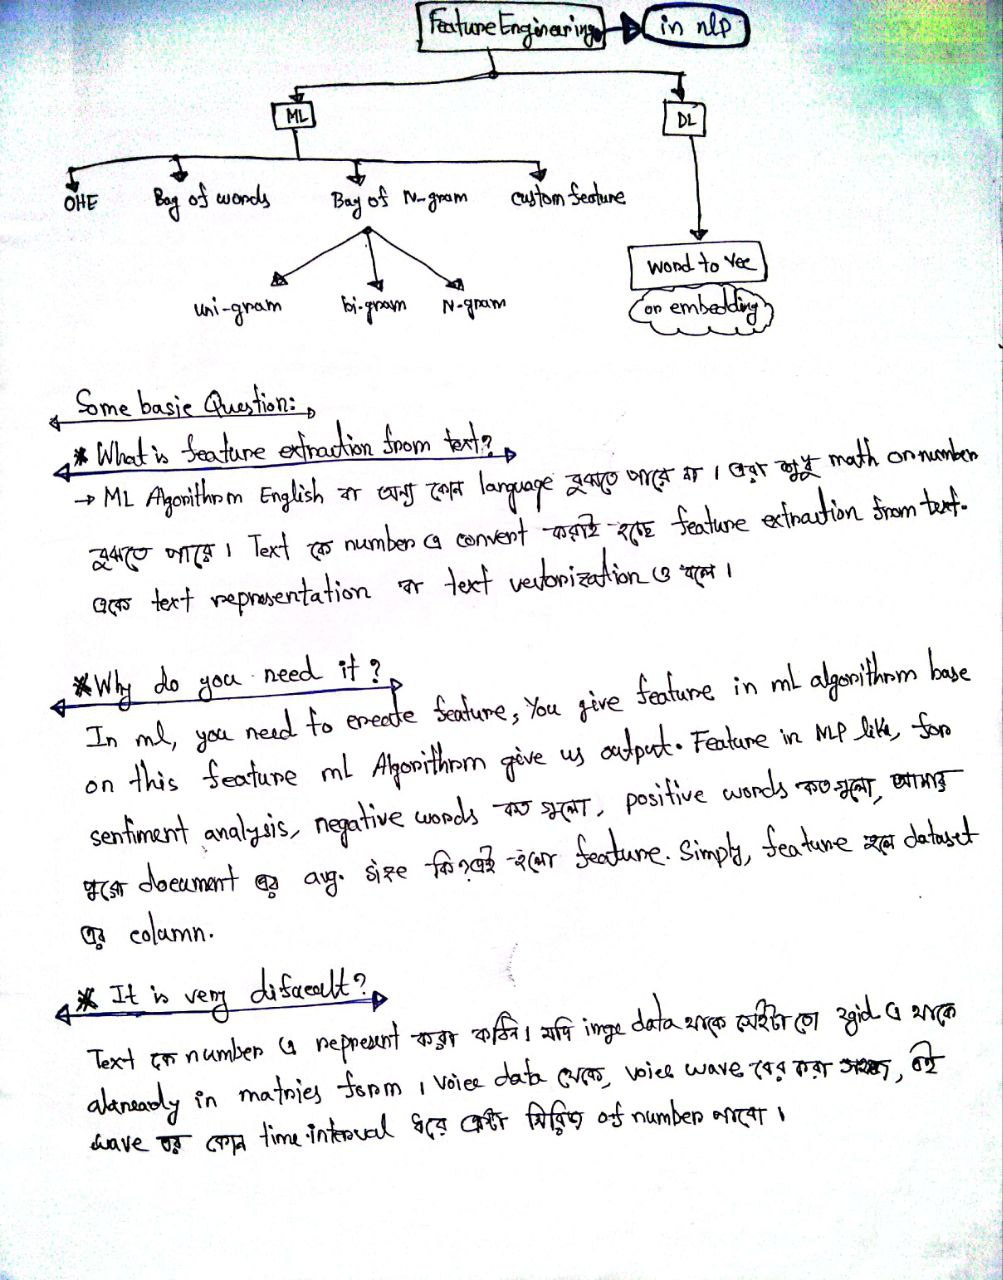 Feature Enginearing in nlp
ML DL
OHE Bag of words Bag of N-gram custom feature
word to vec
uni-gram bi-gram N-gram or embedding
Some basic Question:
* What is feature extraction from text?
→ ML Algorithrm English বা অন্য কোন language বুঝতে পারে না। ওরা শুধু math or number
বুঝতে পারে। Text কে number এ convert করাই হচ্ছে feature extraction from text.
একে text representation বা text vectorization ও বলে।
* Why do you need it?
In ml, you need to create feature, You give feature in ml algorithrm base
on this feature ml Algorithrm give us output. Feature in NLP like, for
sentiment analysis, negative words কত গুলো, positive words কত গুলো, আমার
পুরো document এর avg. size কি? এই হলো feature. Simply, feature হলে dataset
এর column.
* It is very difacult?
Text কে number এ reprresent করা কঠিন। যদি imge data থাকে সেইটা তো গgid এ থাকে
alaready in matries form। voice data থেকে, voice wave বের করা সহজ, ওই
wave এর কোন time interval ধরে একটা সিরিজ of number পাবো।